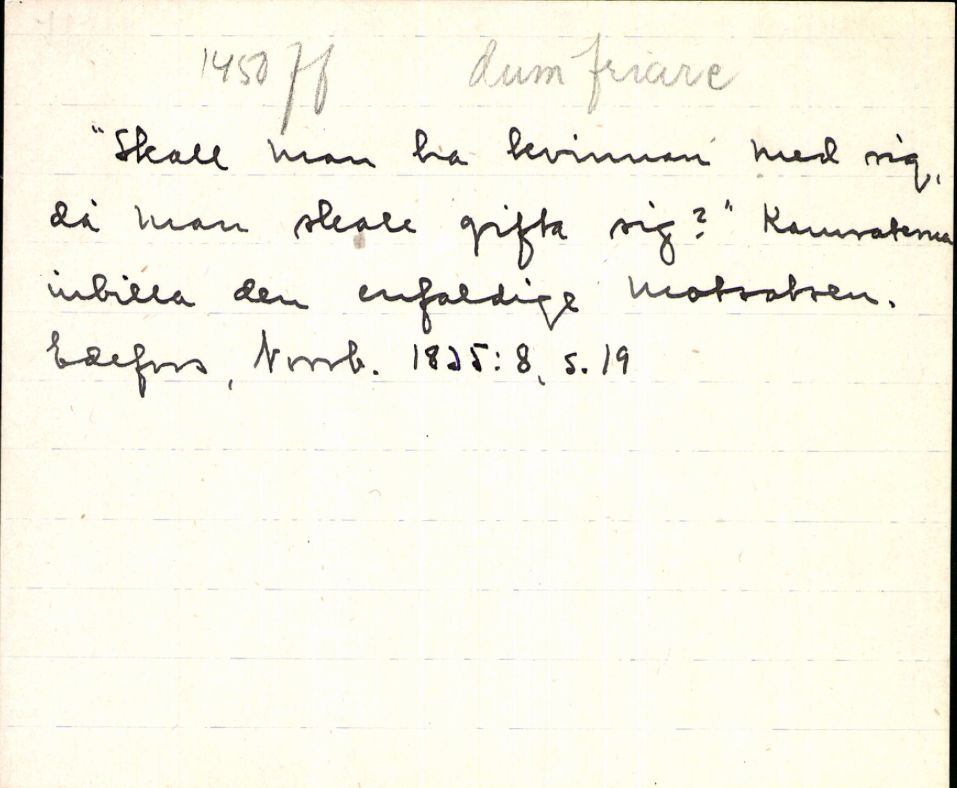 1450 ff dum friare
"Skall man ha kvinnan med sig,
då man skall gifta sig?" Kamraterna
inbilla den enfaldige motsatsen.
Edefors, Norrb. 1835:8, s. 19